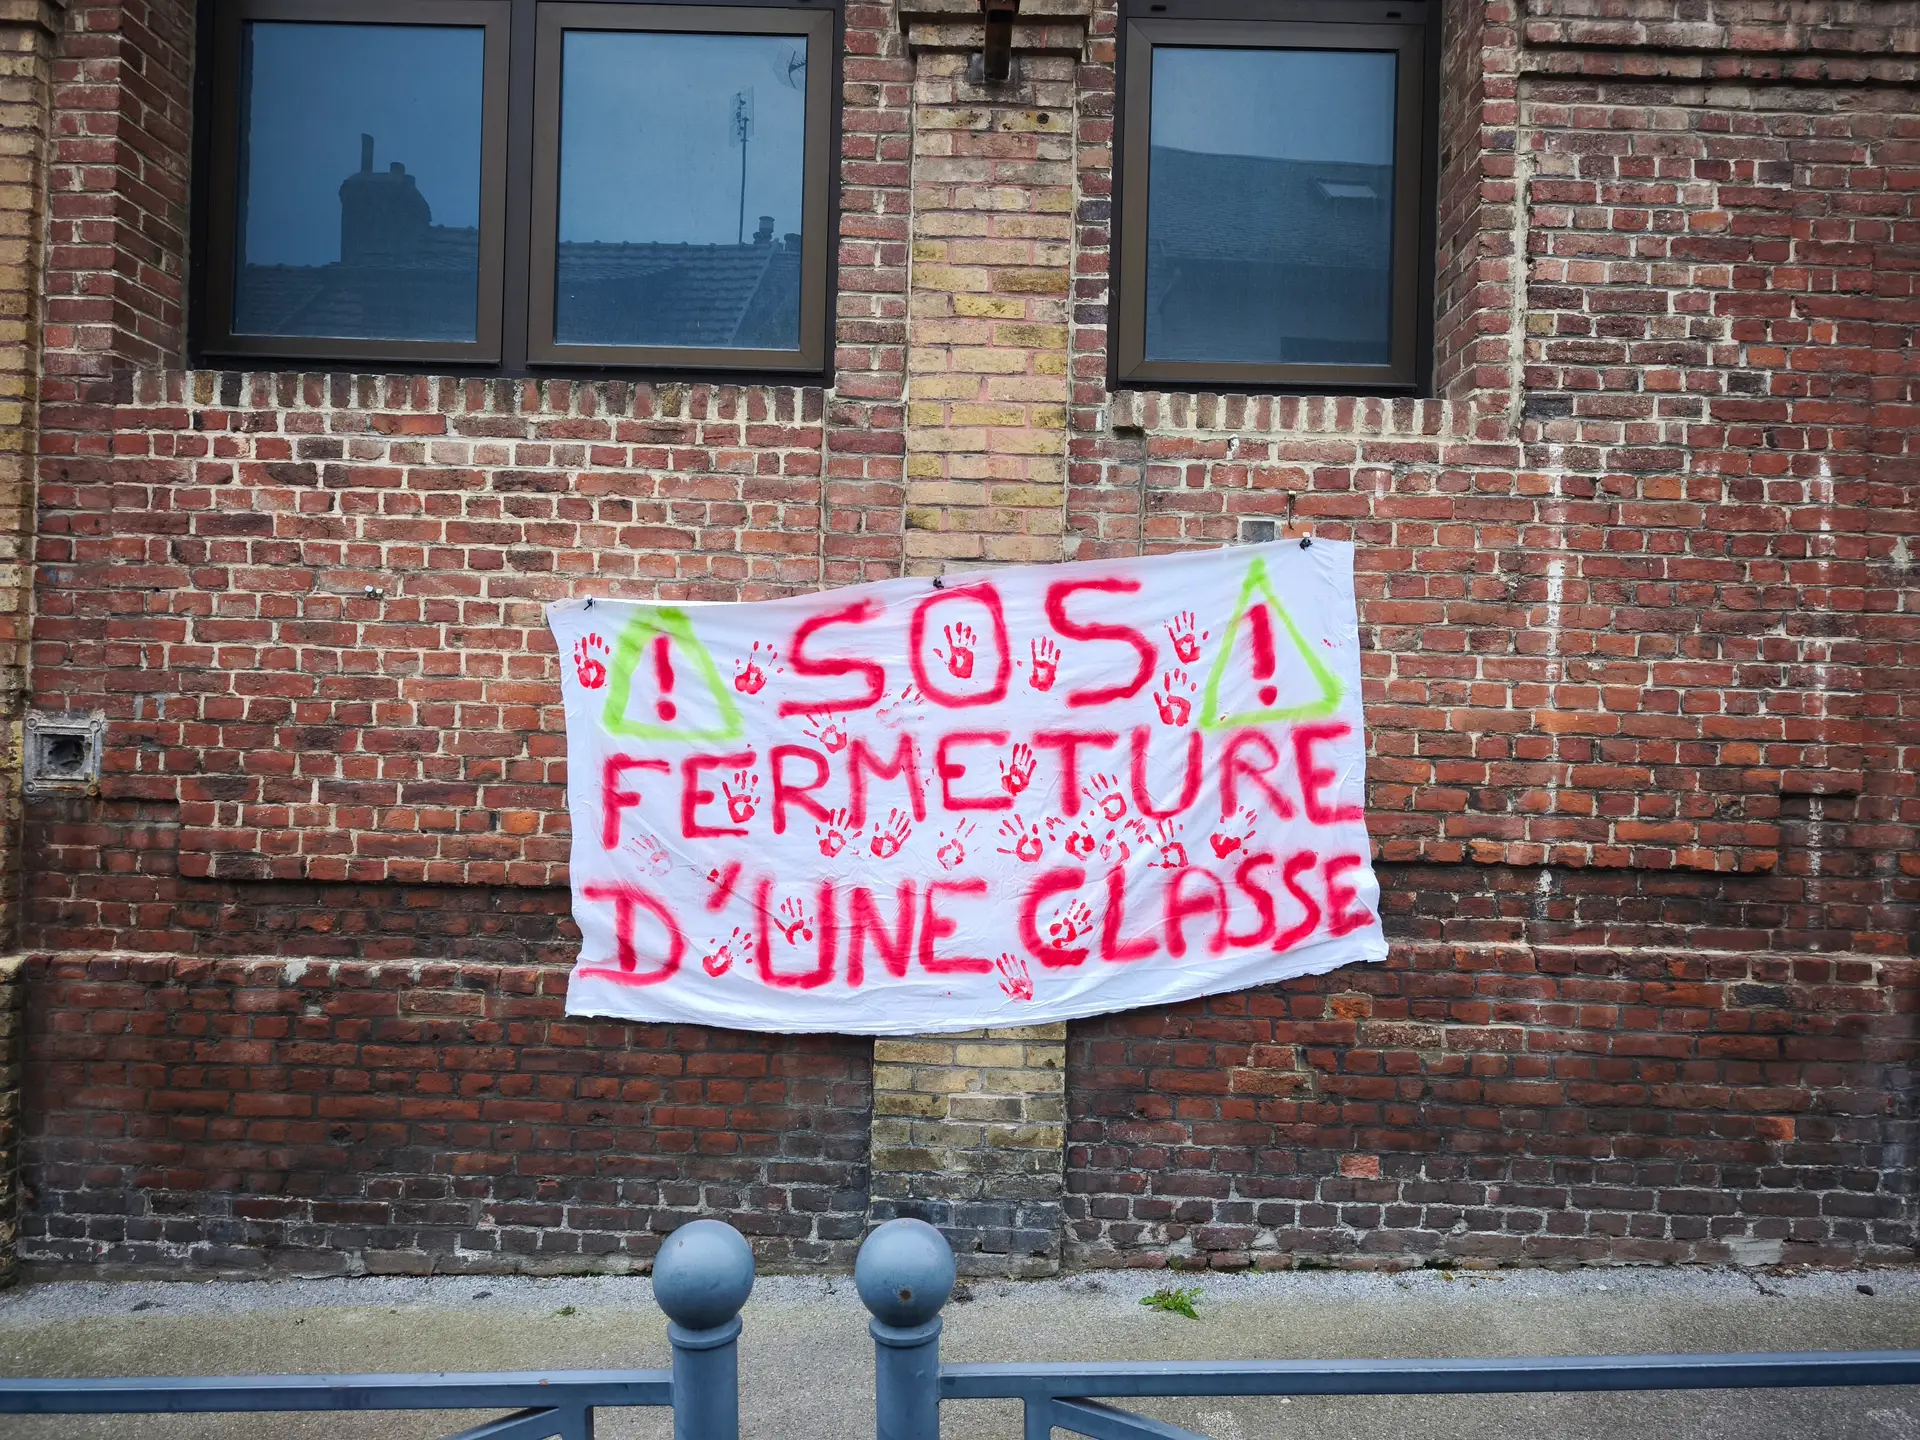 ! SOS !
FERMETURE
D'UNE CLASSE